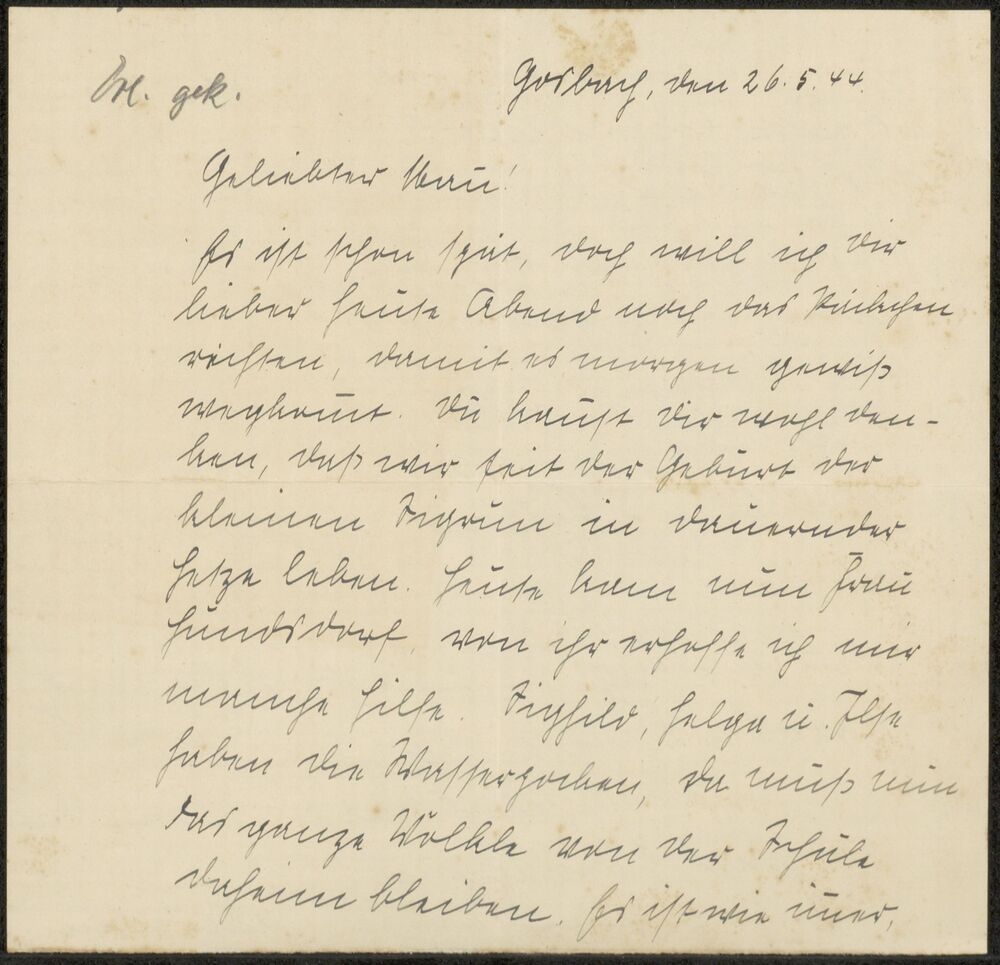 Gosbach, den 26.5.44.
gek.
Geliebter Mann!
Es ist schon spät, doch will ich Dir
lieber heute Abend noch das Päckchen
richten, damit es morgen gewiß
wegkom̅t. Du kannst Dir wohl den-
ken, daß wir seit der Geburt der
kleinen Sigrun in dauernder
Hetze leben. Heute kam nun Frau
Hundsdorf, von ihr erhoffe ich mir
manche Hilfe. Sighild, Helga u. Ilse
haben die Wasserpocken, da muß nun
das ganze Völkle von der Schule
daheim bleiben. Es ist wie im̅er,